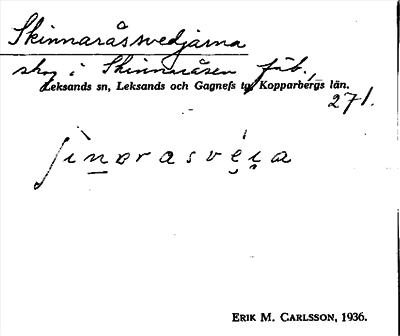 Skinnaråssvedjärna
skog i Skinnaråsen fäb.,
Leksands sn, Leksands och Gagnefs tg, Kopparbergs län.
271.
ʃìnɐrasvéi̯a
ERIK M. CARLSSON, 1936.